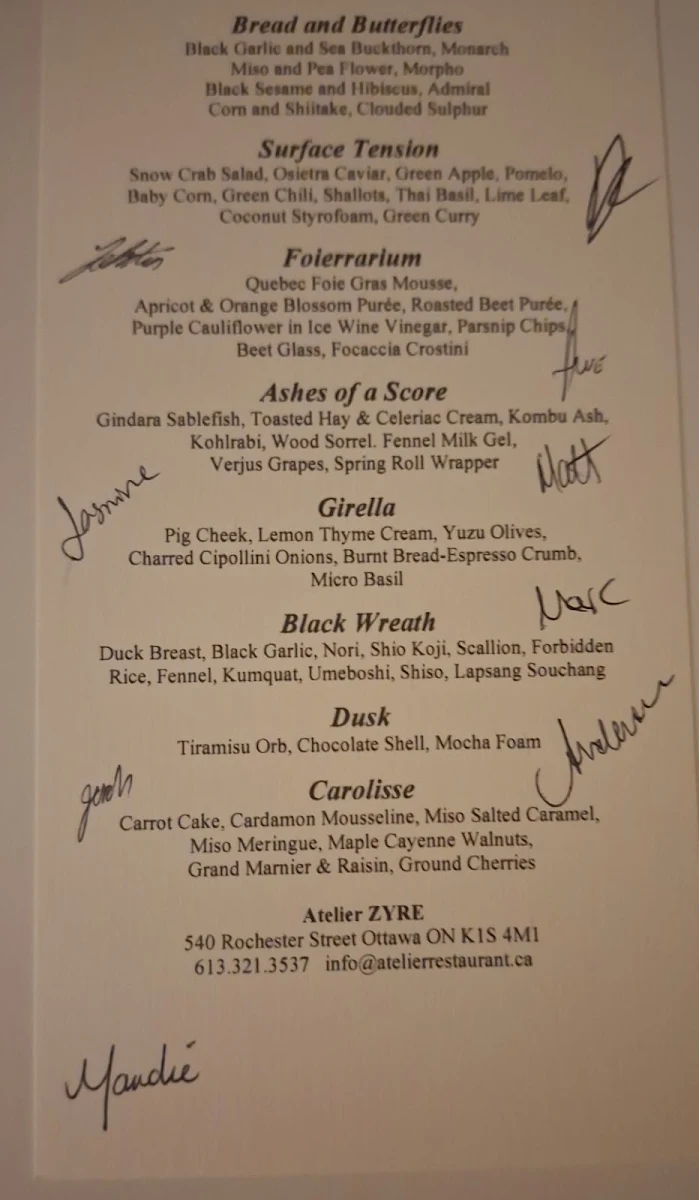 Bread and Butterflies
Black Garlic and Sea Buckthorn, Monarch
Miso and Pea Flower, Morpho
Black Sesame and Hibiscus, Admiral
Corn and Shiitake, Clouded Sulphur
Surface Tension
Snow Crab Salad, Osietra Caviar, Green Apple, Pomelo,
Baby Corn, Green Chili, Shallots, Thai Basil, Lime Leaf,
Coconut Styrofoam, Green Curry
Foierrarium
Quebec Foie Gras Mousse,
Apricot & Orange Blossom Purée, Roasted Beet Purée,
Purple Cauliflower in Ice Wine Vinegar, Parsnip Chips,
Beet Glass, Focaccia Crostini
Ashes of a Score
Gindara Sablefish, Toasted Hay & Celeriac Cream, Kombu Ash,
Kohlrabi, Wood Sorrel. Fennel Milk Gel,
Verjus Grapes, Spring Roll Wrapper
Matt
Jasmine
Girella
Pig Cheek, Lemon Thyme Cream, Yuzu Olives,
Charred Cipollini Onions, Burnt Bread-Espresso Crumb,
Micro Basil
Marc
Black Wreath
Duck Breast, Black Garlic, Nori, Shio Koji, Scallion, Forbidden
Rice, Fennel, Kumquat, Umeboshi, Shiso, Lapsang Souchang
Dusk
Tiramisu Orb, Chocolate Shell, Mocha Foam
Carolisse
Carrot Cake, Cardamon Mousseline, Miso Salted Caramel,
Miso Meringue, Maple Cayenne Walnuts,
Grand Marnier & Raisin, Ground Cherries
Atelier ZYRE
540 Rochester Street Ottawa ON K1S 4M1
613.321.3537 info@atelierrestaurant.ca